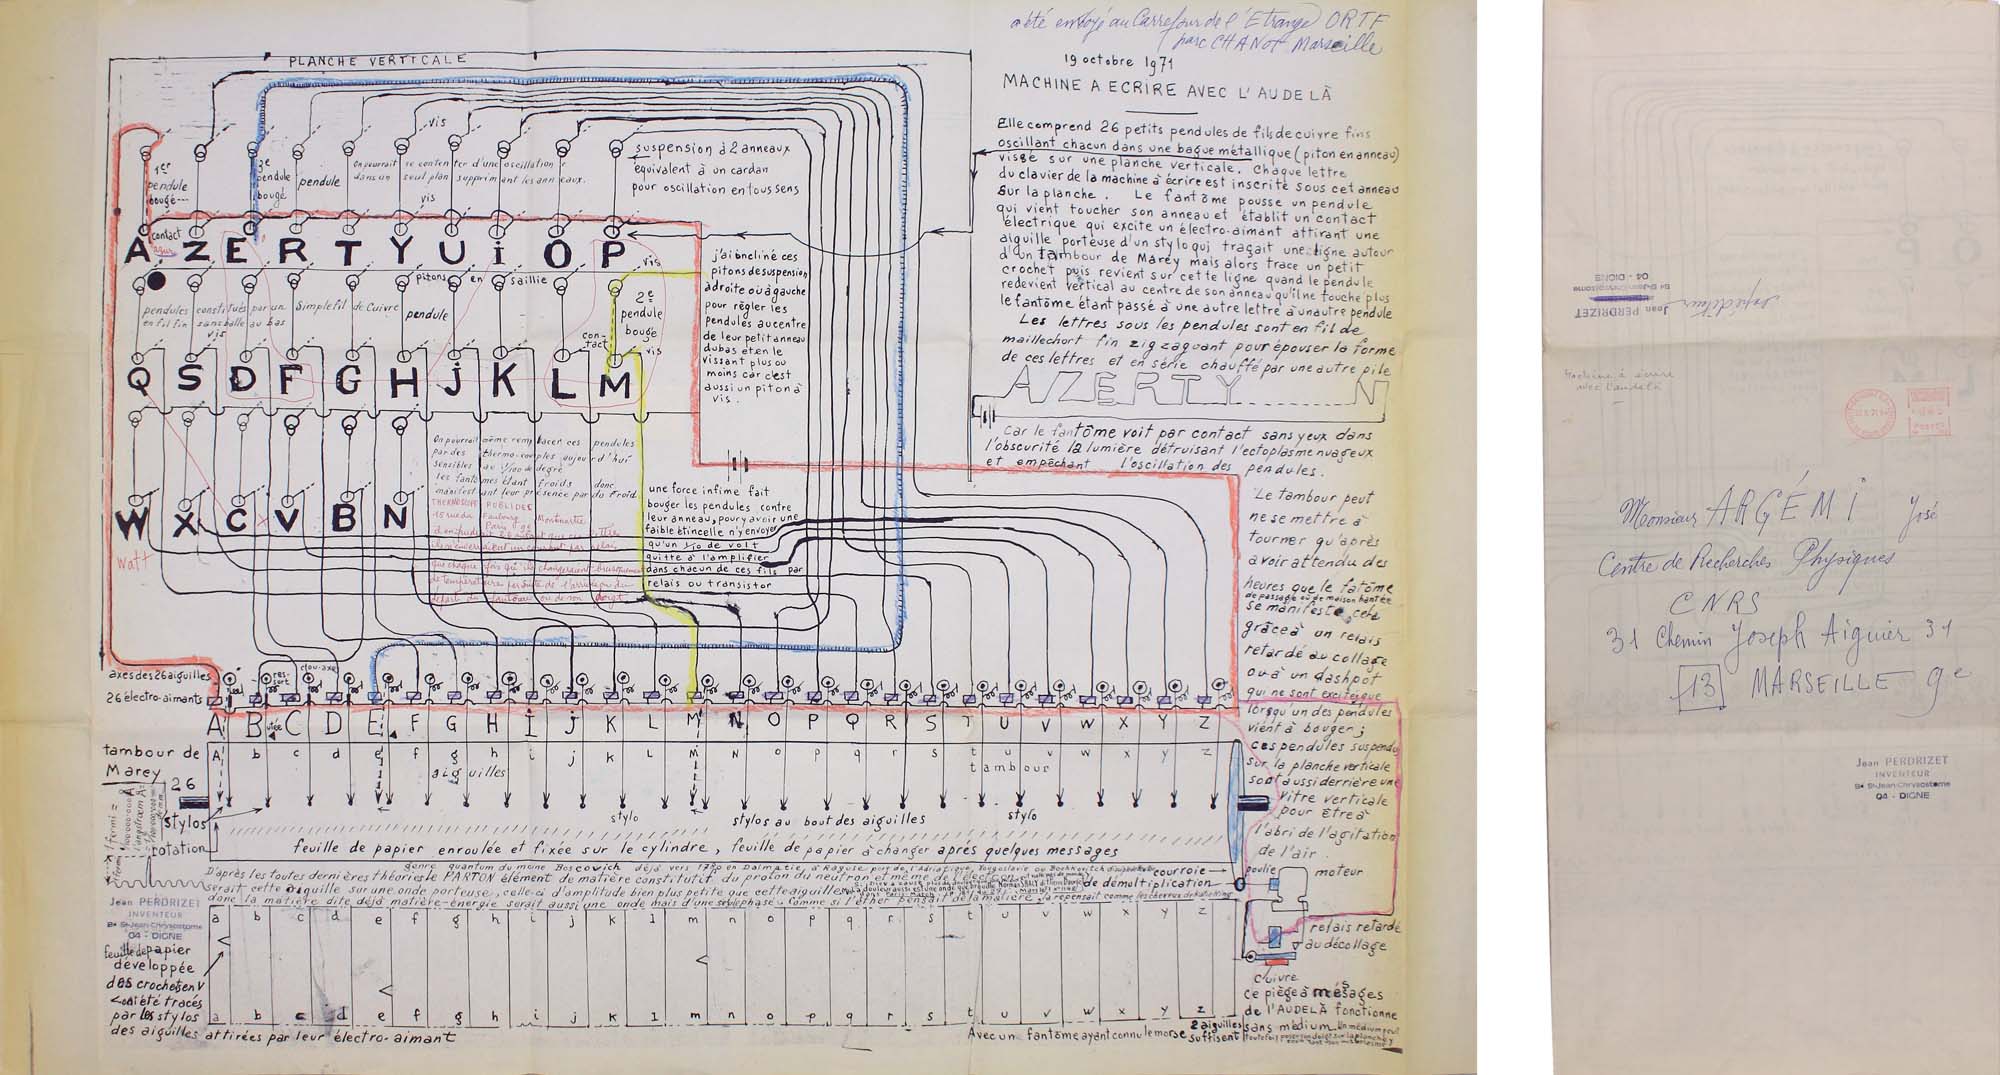 a été envoyé au Carrefour de l'Etrange ORTF
parc CHANOT Marseille
19 octobre 1971
MACHINE A ECRIRE AVEC L'AUDELÀ
Elle comprend 26 petits pendules de fils de cuivre fins
oscillant chacun dans une bague métallique (piton en anneau)
vissé sur une planche verticale. Chaque lettre
du clavier de la machine à écrire est inscrite sous cet anneau
sur la planche. Le fantôme pousse un pendule
qui vient toucher son anneau et établit un contact
électrique qui excite un électro-aimant attirant une
aiguille porteuse d'un stylo qui traçait une ligne autour
d'un tambour de Marey mais alors trace un petit
crochet puis revient sur cette ligne quand le pendule
redevient vertical au centre de son anneau qu'il ne touche plus
le fantôme étant passé à une autre lettre à un autre pendule
Les lettres sous les pendules sont en fil de
maillechort fin zigzaguant pour épouser la forme
de ces lettres et en série chauffé par une autre pile
AZERTY N
car le fantôme voit par contact sans yeux dans
l'obscurité la lumière détruisant l'ectoplasme nuageux
et empêchant l'oscillation des pendules.
Le tambour peut
ne se mettre à
tourner qu'après
avoir attendu des
heures que le fatôme
de passage ou de maison hantée
se manifeste, cela
grâce à un relais
retardé au collage
ou à un dashpot
qui ne sont excités que
lorsqu'un des pendules
vient à bouger;
ces pendules suspendus
sur la planche verticale
sont aussi derrière une
vitre verticale
pour être à
l'abri de l'agitation
de l'air.
PLANCHE VERTICALE
vis
1er
pendule
bougé
3e
pendule
bougé
pendule
On pourrait se contenter d'une oscillation
dans un seul plan supprimant les anneaux.
vis
suspension à 2 anneaux
équivalent à un cardan
pour oscillation en tous sens
contact
A Z E R T Y U i O P
pitons en saillie
vis
j'ai incliné ces
pitons de suspension
à droite ou à gauche
pour règler les
pendules au centre
de leur petit anneau
du bas et en le
vissant plus ou
moins car c'est
aussi un piton à
vis.
pendules constitués par un simple fil de Cuivre
en fil fin sans balle au bas
vis
pendule
2e
pendule
bougé
contact
vis
Q S D F G H j K L M
On pourrait même remplacer ces pendules
par des thermo-couples aujourd'hui
sensibles au 1/100 de degré
les fantômes étant froids donc
manifestant leur présence par du froid
une force infime fait
bouger les pendules contre
leur anneau, pour y avoir une
faible étincelle n'y envoyer
qu'un 1/10 de volt
quitte à l'amplifier
dans chacun de ces fils par
relais ou transistor
W X C V B N
Watt
axes des 26 aiguilles
ressort
clou-axe
26 électro-aimants
A B C D E F G H I j K L M N O P Q R S T U V W X Y Z
tambour de
Marey
A b c d e f g h i j k L M N o p q r s t u v w x y z
aiguilles
tambour
26
stylos
stylo
stylos au bout des aiguilles
stylo
rotation
feuille de papier enroulée et fixée sur le cylindre, feuille de papier à changer après quelques messages
D'après les toutes dernières théories le PARTON élément de matière constitutif du proton du neutron et même de l'électron
serait cette aiguille sur une onde porteuse, celle-ci d'amplitude bien plus petite que cette aiguille
donc la matière dite déjà matière-énergie serait aussi une onde mais d'une seule phase. Comme si l'éther pensait de la matière
courroie
de démultiplication
poulie
moteur
Jean PERDRIZET
INVENTEUR
Bd St-Jean-Chrysostome
04 - DIGNE
a b c d e f g h i j k l m n o p q r s t u v w x y z
feuille de papier
développée
des crochets en V
< ont été tracés
par les stylos
des aiguilles attirées par leur électro-aimant
a b c d e f g h i j k l m n o p q r s t u v w x y z
relais retardé
au décollage
cuivre
Ce piège à mésages
de l'AUDELÀ fonctionne
sans médium.
Avec un fantôme ayant connu le morse 2 aiguilles
suffisent
expéditeur
Jean PERDRIZET
Bd St-Jean-Chrysostome
04 - DIGNE
Machine à écrire
avec l'audelà
Monsieur ARGÉMi José
Centre de Recherches Physiques
CNRS
31 Chemin Joseph Aiguier 31
13 MARSEILLE 9e
Jean PERDRIZET
INVENTEUR
Bd St-Jean-Chrysostome
04 - DIGNE